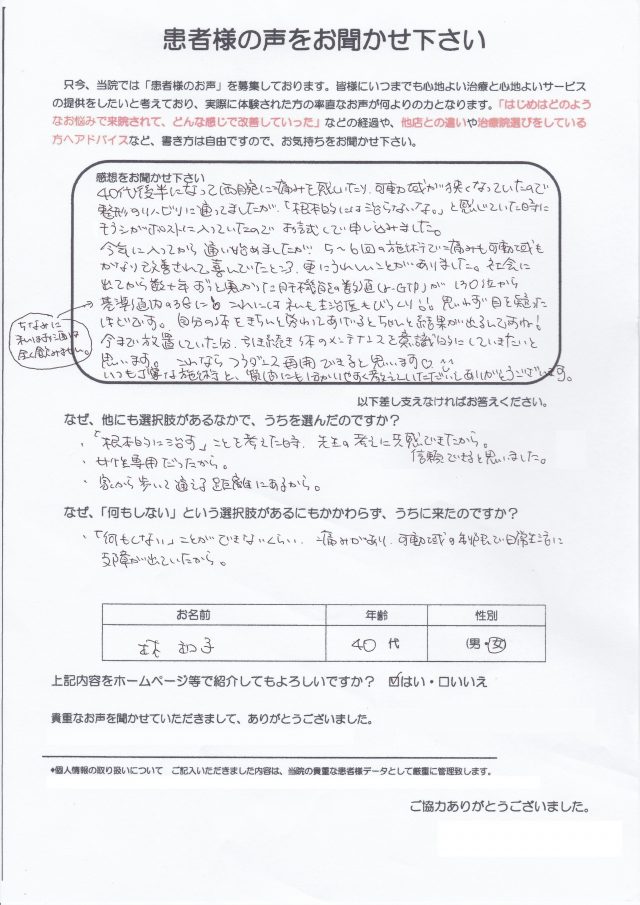 患者様の声をお聞かせ下さい
只今、当院では「患者様のお声」を募集しております。皆様にいつまでも心地よい治療と心地よいサービス
の提供をしたいと考えており、実際に体験された方の率直なお声が何よりの力となります。「はじめはどのよう
なお悩みで来院されて、どんな感じで改善していった」などの経過や、他店との違いや治療院選びをしている
方へアドバイスなど、書き方は自由ですので、お気持ちをお聞かせ下さい。
感想をお聞かせ下さい
40代後半になって両腕に痛みを感じたり、可動域が狭くなっていたので
整形のリハビリに通ってましたが、「根本的には治らないな。」と感じていた時に
チラシがポストに入っていたのでお試しで申し込みました。
今年に入ってから通い始めましたが、5〜6回の施術で痛みも可動域も
かなり改善されて喜んでいたところ、更にうれしいことがありました。社会に
出てから数十年ずっと高かった肝機能の数値(γ-GTP)が130位から
基準値内の38に! これには私も主治医もびっくり!! 思わず目を疑った
ほどです。自分の体をきちんと労わってあげるとちゃんと結果が出るんですね!
今まで放置していた分、引き続き体のメンテナンスを意識的にしていきたいと
思います。これならフラダンス再開できると思います♡
いつも丁寧な施術と、質問にもわかりやすく教えていただいてありがとうございます。
ちなみに
私はお酒は
全く飲みません。
以下差し支えなければお答えください。
なぜ、他にも選択肢があるなかで、うちを選んだのですか？
・「根本的に治す」ことを考えた時、先生の考えに共感できたから。
信頼できると思いました。
・女性専用だったから。
・家から歩いて通える距離にあるから。
なぜ、「何もしない」という選択肢があるにもかかわらず、うちに来たのですか？
・「何もしない」ことができないくらい、痛みがあり、可動域の制限で日常生活に
支障が出ていたから。
お名前 年齢 性別
子 40 代 (男・女)
上記内容をホームページ等で紹介してもよろしいですか？ ☑はい・□いいえ
貴重なお声を聞かせていただきまして、ありがとうございました。
*個人情報の取り扱いについて ご記入いただきました内容は、当院の貴重な患者様データとして厳重に管理致します。
ご協力ありがとうございました。